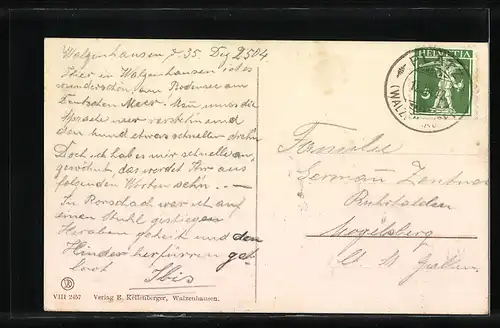 Walzenhausen d. 35. Dez 2504
Hier in Walzenhausen ist es
wunderschön, am Bodensee am
Deutschen Meer. Man muss die
Sprache nur verstehn und
den Mund etwas schneller drehn
Doch ich habe mir schnell an,
gewöhnt, das werdet Ihr aus
folgenden Worten sehn . . —
In Rorschach war ich auf
einen Stuhl gestiegen
Heraben geheit und den
Hinder herfürren gel
loot Ibis
VIII 2457 Verlag E. Kellenberger, Walzenhausen.
HELVETIA
5
(WALZ
Familie
Germann Zentner
Ruhrhalden
Mogelsberg
Ct. St. Gallen